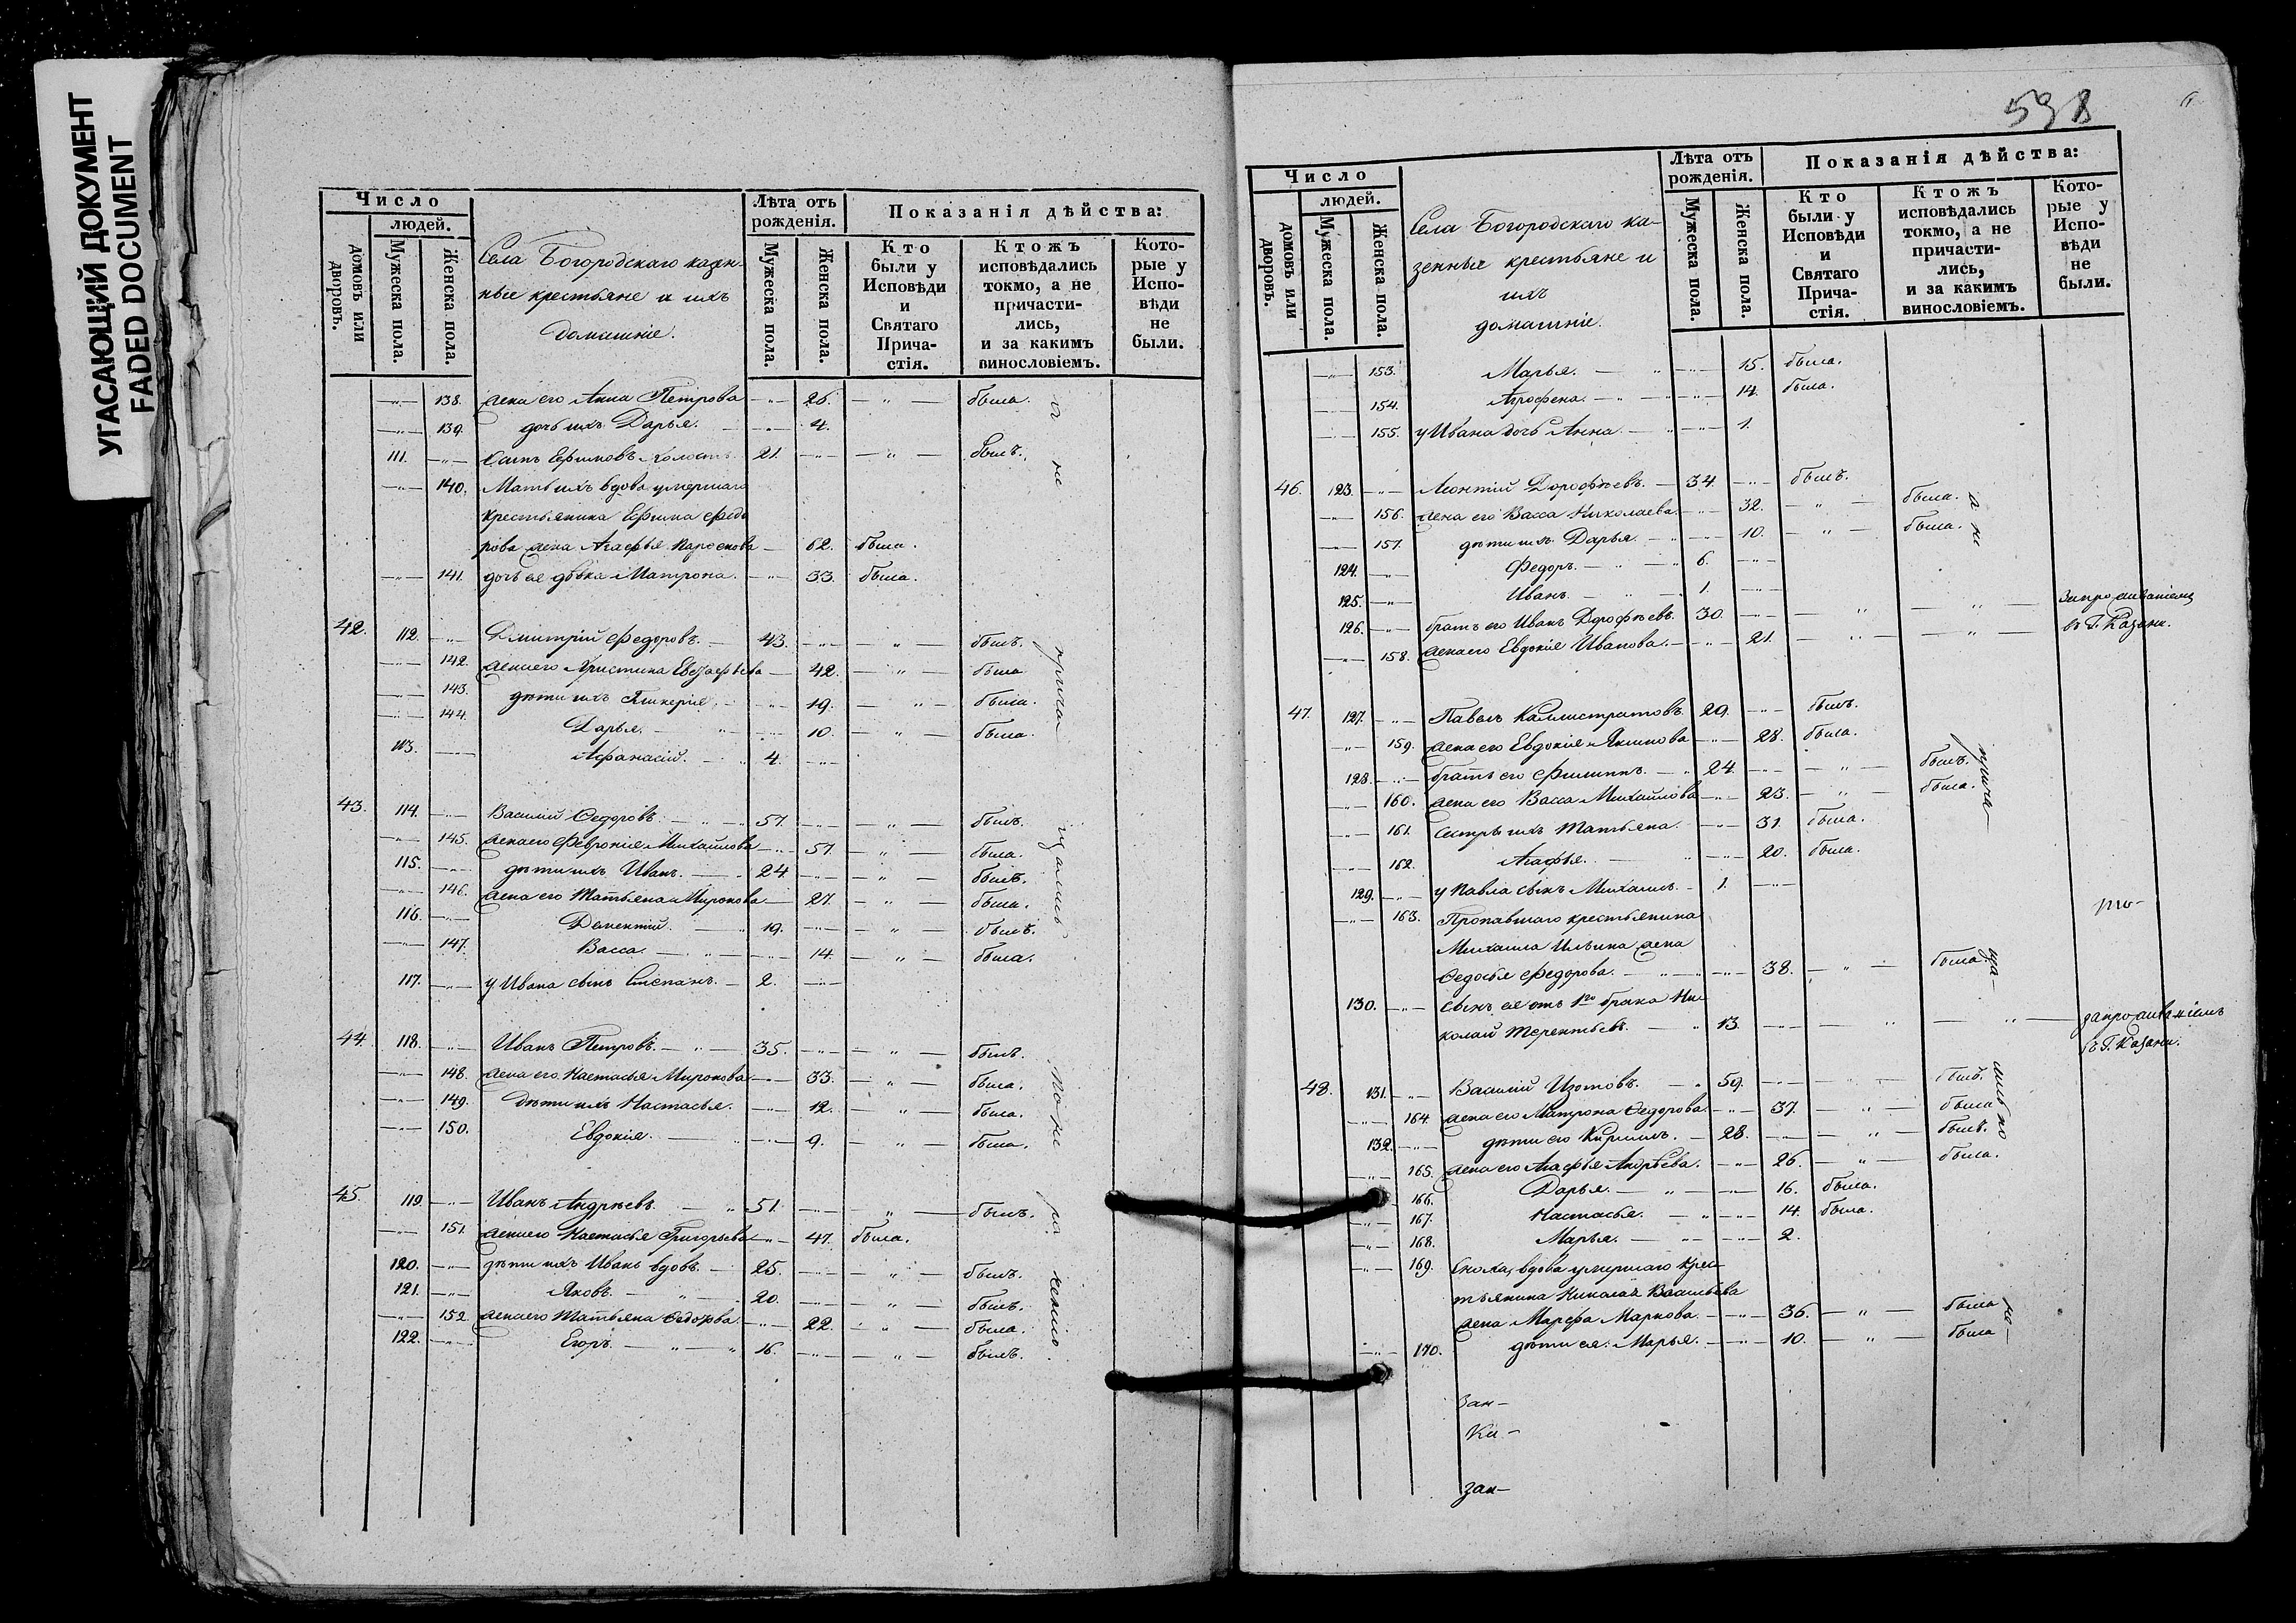 УГАСАЮЩИЙ ДОКУМЕНТ
FADED DOCUMENT
Число
людей.
домовъ или дворовъ.
Мужеска пола.
Женска пола.
Села Богородскаго казен-
ные крестьяне и ихъ
домашніе.
Лѣта отъ рожденія.
Мужеска пола.
Женска пола.
Показанія дѣйства:
Кто были у Исповѣди и Святаго Прича-стія.
Ктожъ исповѣдались токмо, а не причасти-лись, и за какимъ винословіемъ.
Кото-рые у Испо-вѣди не были.
—"— 138. жена его Анна Петрова —"— 26. —"— была.
—"— 139. дочь ихъ Дарья. —"— 4.
111. —"— Ефимовъ холостъ 21. —"— —"— былъ.
—"— 140. Мать ихъ вдова умершаго
крестьянина Ефима Федо
рова жена Агафья — 62. была.
—"— 141. дочь ея дѣвка Матрона. —"— 33. была.
42. 112. —"— Дмитрій Федоровъ. — 43. —"— —"— былъ.
—"— 142. жена его Христина —"— 42. —"— была
—"— 143. дѣти ихъ Гликерія. —"— 19. —"— была.
—"— 144. Дарья. —"— 10. —"— была.
113. —"— Афанасій. —"— 4. —"—
43. 114. —"— Василій Федоровъ. —"— 57. —"— —"— былъ.
—"— 145. жена его Февронія Михайлова —"— 57. —"— была.
115. —"— дѣти ихъ Иванъ. — 24. —"— —"— былъ.
—"— 146. жена его Татьяна Миронова — 27. —"— была.
116. —"— Дементій. — 19. —"— —"— былъ.
—"— 147. Васса. —"— 14. —"— была.
117. —"— у Ивана сынъ Степанъ. — 2. —"—
44. 118. —"— Иванъ Петровъ. —"— 35. —"— —"— былъ.
—"— 148. жена его Настасья Миронова —"— 33. —"— была.
—"— 149. дѣти ихъ Настасья. —"— 12. —"— была.
—"— 150. Евдокія. —"— 9. —"— была.
45. 119. —"— Иванъ Андреевъ. —"— 51. —"— —"— былъ.
—"— 151. жена его Настасья Григорьева —"— 47. была.
120. —"— дѣти ихъ Иванъ вдовъ. — 25. —"— —"— былъ.
121. —"— Яковъ. —"— 20. —"— —"— былъ.
—"— 152. жена его Татьяна Федорова. —"— 22. —"— была.
122. —"— Егоръ. —"— 16. —"— —"— былъ.
а не прича щались
598
Число
людей.
домовъ или дворовъ.
Мужеска пола.
Женска пола.
Села Богородскаго ка-
зенные крестьяне и
ихъ
домашніе.
Лѣта отъ рожденія.
Мужеска пола.
Женска пола.
Показанія дѣйства:
Кто были у Исповѣди и Святаго Прича-стія.
Ктожъ исповѣдались токмо, а не причасти-лись, и за какимъ винословіемъ.
Кото-рые у Испо-вѣди не были.
—"— 153. Марья. —"— 15. была.
—"— 154. Агрофена. —"— 14. была.
—"— 155. у Ивана дочь Анна. —"— 1.
46. 123. —"— Леонтій Дорофеевъ. — 34. —"— былъ.
—"— 156. жена его Васса Николаева. —"— 32. —"— была.
—"— 157. дѣти ихъ Дарья. —"— 10. —"— была.
124. —"— Федоръ. —"— 6. —"—
125. —"— Иванъ. —"— 1. —"—
126. —"— братъ его Иванъ Дорофеевъ. 30. —"— —"— —"— За проживаніемъ
—"— 158. жена его Евдокія Иванова. —"— 21. —"— —"— въ Г. Казани.
47. 127. —"— Павелъ Каллистратовъ. 29. —"— былъ.
—"— 159. жена его Евдокія Якимова —"— 28. была.
128. —"— братъ его Филиппъ. —"— 24. —"— —"— былъ.
—"— 160. жена его Васса Михайлова —"— 23. —"— была.
—"— 161. сестры ихъ Татьяна. —"— 31. была.
—"— 162. Агафья. —"— 20. была.
129. —"— у Павла сынъ Михаилъ. — 1. —"—
—"— 163. Пропавшаго крестьянина
Михаила Ильина жена
Федосья Федорова. —"— 38. —"— была.
130. —"— сынъ ея отъ 1го брака Ни-
колай Терентьевъ. —"— 13. —"— —"— —"— за проживаніемъ
въ Г. Казани.
48. 131. —"— Василій Изотовъ. —"— 59. —"— —"— былъ.
—"— 164. жена его Матрона Федорова. —"— 37. —"— была
132. —"— дѣти его Кириллъ. — 28. —"— —"— былъ.
—"— 165. жена его Агафья Андреева. —"— 26. —"— была.
—"— 166. Дарья. —"— 16. была.
—"— 167. Настасья. —"— 14. была.
—"— 168. Марья. —"— 2.
—"— 169. Сноха, вдова умершаго крес-
тьянина Николая Васильева
жена Марфа Маркова. —"— 36. —"— была
—"— 170. дѣти ея: Марья. —"— 10. —"— была
а не прича ща-